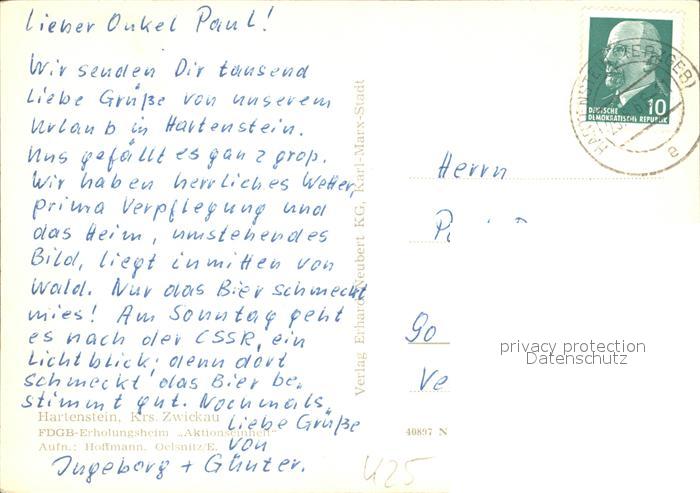 Lieber Onkel Paul!
Wir senden Dir tausend
liebe Grüße von unserem
Urlaub in Hartenstein.
Uns gefällt es ganz groß.
Wir haben herrliches Wetter,
prima Verpflegung und
das Heim, umstehendes
Bild, liegt inmitten von
Wald. Nur das Bier schmeckt
mies! Am Sonntag geht
es nach der CSSR, ein
Lichtblick; denn dort
schmeckt das Bier be-
stimmt gut. Nochmals
liebe Grüße
von
Ingeborg + Günter.
Hartenstein, Krs. Zwickau
FDGB-Erholungsheim „Aktionseinheit“
Aufn.: Hoffmann, Oelsnitz/E.
Verlag Erhard Neubert KG, Karl-Marx-Stadt
DEUTSCHE
DEMOKRATISCHE REPUBLIK
10
Herrn
P
Go
Ve
40897 N
privacy protection
Datenschutz
425